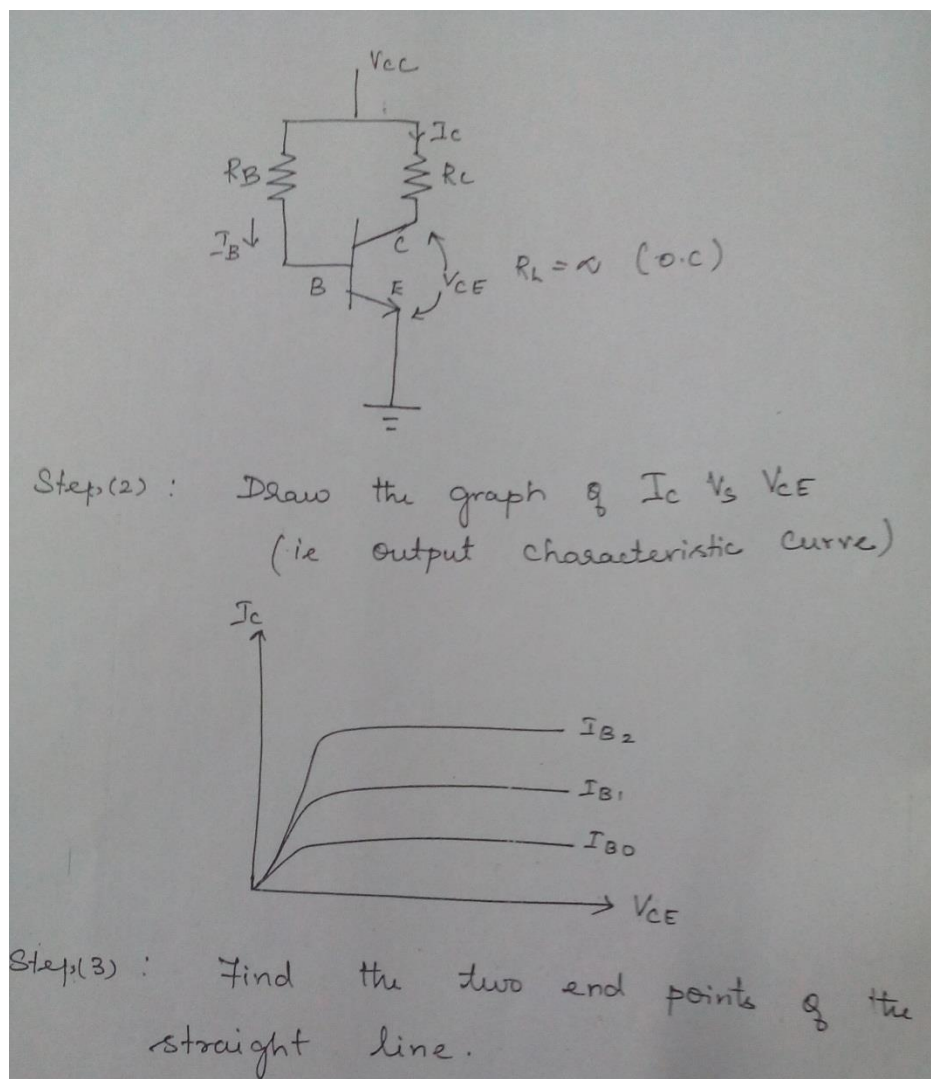 Vcc
Ic
RB
Rc
IB
C
B
E
VCE
RL = ∝ (O.C)
Step(2) : Draw the graph of Ic Vs VCE
(ie output characteristic curve)
Ic
IB2
IB1
IB0
VCE
Step(3) : Find the two end points of the
straight line.